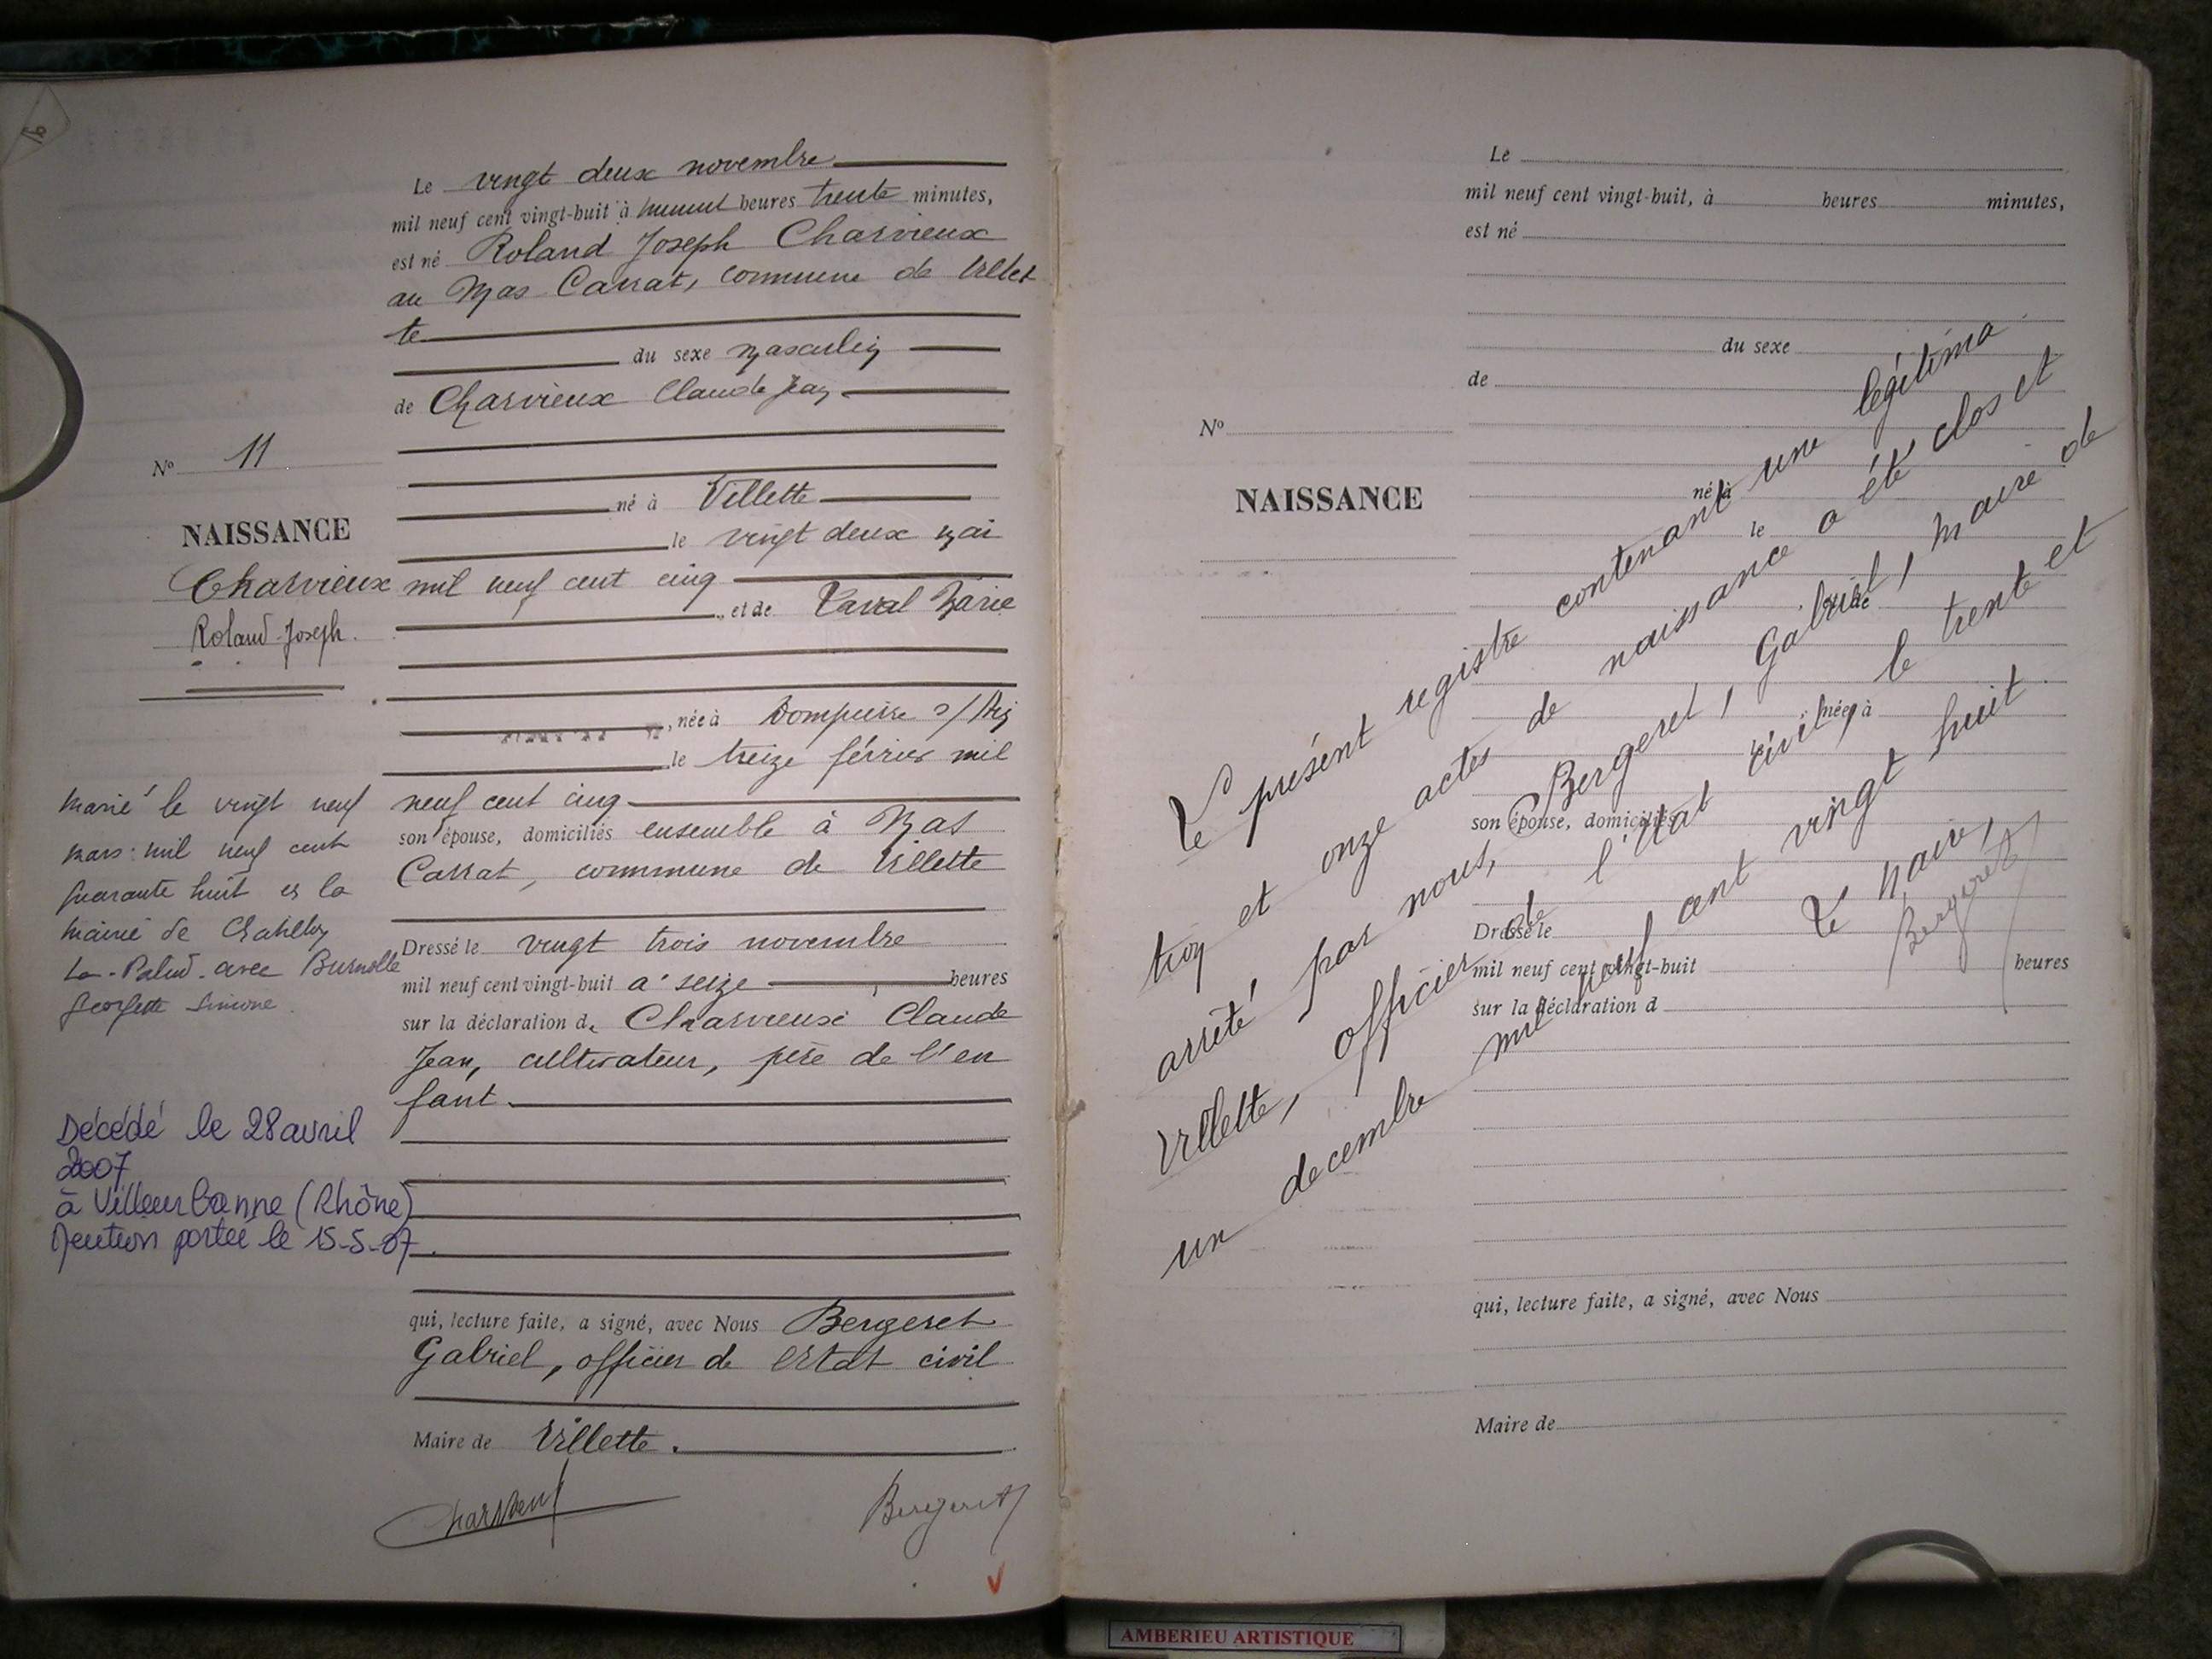 Le vingt deux novembre
mil neuf cent vingt-huit à heures trente minutes,
est né Roland Joseph Charvieux
au Mas Carrat, commune de Villet
te
du sexe masculin
de Charvieux Claude Jean
né à Villette
le vingt deux mai
mil neuf cent cinq
et de Marie
née à Dompierre s/ Ain
le treize février mil
neuf cent cinq
son épouse, domiciliés ensemble à Mas
Carrat, commune de Villette
Dressé le vingt trois novembre
mil neuf cent vingt-huit à seize heures
sur la déclaration de Charvieux Claude
Jean, cultivateur, père de l'en
fant.
qui, lecture faite, a signé, avec Nous Bergeret
Gabriel, officier de l'Etat civil
Maire de Villette.
Charvieux
Bergeret
No 11
NAISSANCE
Charvieux
Roland Joseph.
Marié le vingt neuf
mars mil neuf cent
quarante huit à la
mairie de Chatillon
La-Palud avec
Georgette Simone.
Décédé le 28 avril
2007
à Villeurbanne (Rhône)
Mention portée le 15-5-07.
No
NAISSANCE
Le
mil neuf cent vingt-huit, à heures minutes,
est né
du sexe
de
né à
le
et de
née à
le
son épouse, domiciliés
Dressé le
mil neuf cent vingt-huit heures
sur la déclaration d
qui, lecture faite, a signé, avec Nous
Maire de
Le présent registre contenant une légitima
tion et onze actes de naissance a été clos et
arrêté par nous, Bergeret, Gabriel, maire de
Villette, officier de l'état civil, le trente et
un decembre mil neuf cent vingt huit
Le Maire,
Bergeret
AMBERIEU ARTISTIQUE